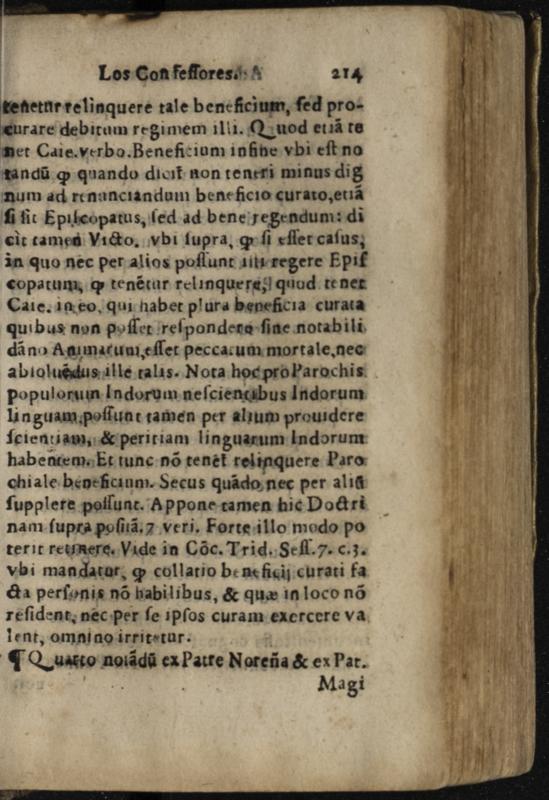 Los Confeſſores. 214
tenetur relinquere tale beneficium, ſed pro-
curare debitum regimem illi. Quod etiã te
net Caie. verbo. Beneficium infine vbi eſt no
tandũ ꝙ quando dicit non teneri minus dig
num ad renunciandum beneficio curato, etiã
ſi ſit Epiſcopatus, ſed ad bene regendum: di
cit tamen Victo. vbi ſupra, ꝙ ſi eſſet caſus,
in quo nec per alios poſſunt illi regere Epiſ
copatum, ꝙ tenẽtur relinquere, quod tenet
Caie. in eo, qui habet plura beneficia curata
quibus non poſſet reſpondere ſine notabili
dãno Animarum, eſſet peccatum mortale, nec
abſoluẽdus ille talis. Nota hoc pro Parochis
populorum Indorum neſcientibus Indorum
linguam, poſſunt tamen per alium prouidere
ſcientiam, & peritiam linguarum Indorum
habentem. Et tunc nõ tenẽt relinquere Paro
chiale beneficium. Secus quãdo nec per aliũ
ſupplere poſſunt. Appone tamen hic Doctri
nam ſupra poſitã. 7 veri. Forte illo modo po
terit retinere. Vide in Cõc. Trid. Seſſ. 7. c. 3.
vbi mandatur, ꝙ collatio beneficij curati fa
cta perſonis nõ habilibus, & quæ in loco nõ
reſident, nec per ſe ipſos curam exercere va
lent, omnino irritetur.
¶ Quarto notãdũ ex Patre Noreña & ex Pat.
Magi